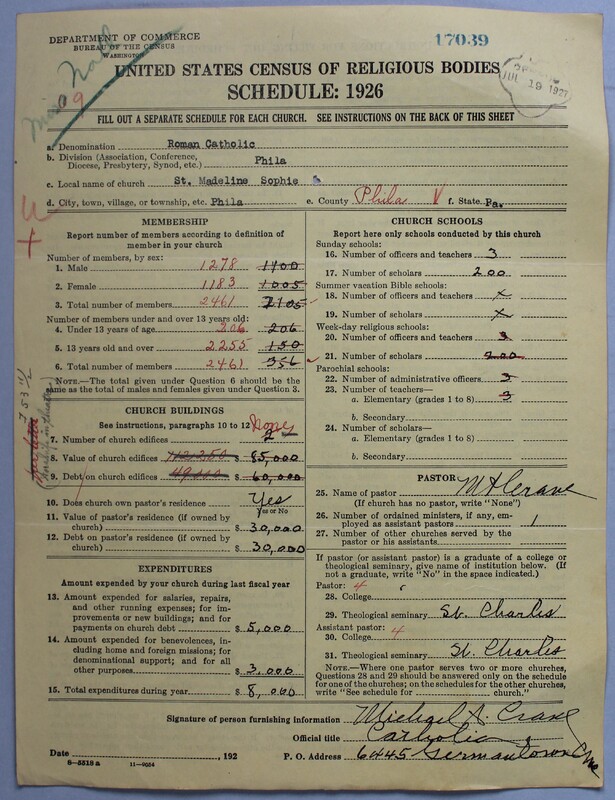 DEPARTMENT OF COMMERCE
BUREAU OF THE CENSUS
WASHINGTON
17039
JUL 19 1927
UNITED STATES CENSUS OF RELIGIOUS BODIES
SCHEDULE: 1926
FILL OUT A SEPARATE SCHEDULE FOR EACH CHURCH. SEE INSTRUCTIONS ON THE BACK OF THIS SHEET
a. Denomination Roman Catholic
b. Division (Association, Conference, Diocese, Presbytery, Synod, etc.) Phila
c. Local name of church St. Madeline Sophie
d. City, town, village, or township, etc. Phila e. County Phila f. State Pa.
MEMBERSHIP
Report number of members according to definition of
member in your church
Number of members, by sex:
1. Male 1278 1100
2. Female 1183 1005
3. Total number of members 2461 2105
Number of members under and over 13 years old:
4. Under 13 years of age 206 206
5. 13 years old and over 2255 150
6. Total number of members 2461 356
NOTE.—The total given under Question 6 should be the
same as the total of males and females given under Question 3.
CHURCH BUILDINGS
See instructions, paragraphs 10 to 12
7. Number of church edifices 2
8. Value of church edifices $ 85,000
9. Debt on church edifices $ 60,000
10. Does church own pastor's residence? Yes
Yes or No
11. Value of pastor's residence (if owned by
church) $ 30,000
12. Debt on pastor's residence (if owned by
church) $ 30,000
EXPENDITURES
Amount expended by your church during last fiscal year
13. Amount expended for salaries, repairs,
and other running expenses; for im-
provements or new buildings; and for
payments on church debt $ 5,000
14. Amount expended for benevolences, in-
cluding home and foreign missions; for
denominational support; and for all
other purposes $ 3,000
15. Total expenditures during year $ 8,000
CHURCH SCHOOLS
Report here only schools conducted by this church
Sunday schools:
16. Number of officers and teachers 3
17. Number of scholars 200
Summer vacation Bible schools:
18. Number of officers and teachers x
19. Number of scholars x
Week-day religious schools:
20. Number of officers and teachers 3
21. Number of scholars 200
Parochial schools:
22. Number of administrative officers 3
23. Number of teachers—
a. Elementary (grades 1 to 8) 3
b. Secondary
24. Number of scholars—
a. Elementary (grades 1 to 8)
b. Secondary
PASTOR
25. Name of pastor M A Crane
(If church has no pastor, write "None")
26. Number of ordained ministers, if any, em-
ployed as assistant pastors 1
27. Number of other churches served by the
pastor or his assistants
If pastor (or assistant pastor) is a graduate of a college or
theological seminary, give name of institution below. (If
not a graduate, write "No" in the space indicated.)
Pastor: 4
28. College
29. Theological seminary St. Charles
Assistant pastor: 4
30. College
31. Theological seminary St. Charles
NOTE.—Where one pastor serves two or more churches,
Questions 28 and 29 should be answered only on the schedule
for one of the churches; on the schedules for the other churches,
write "See schedule for church."
Signature of person furnishing information Michael A. Crane
Official title Catholic
Date , 192 P. O. Address 6445 Germantown Ave
8—5518 a 11—9054